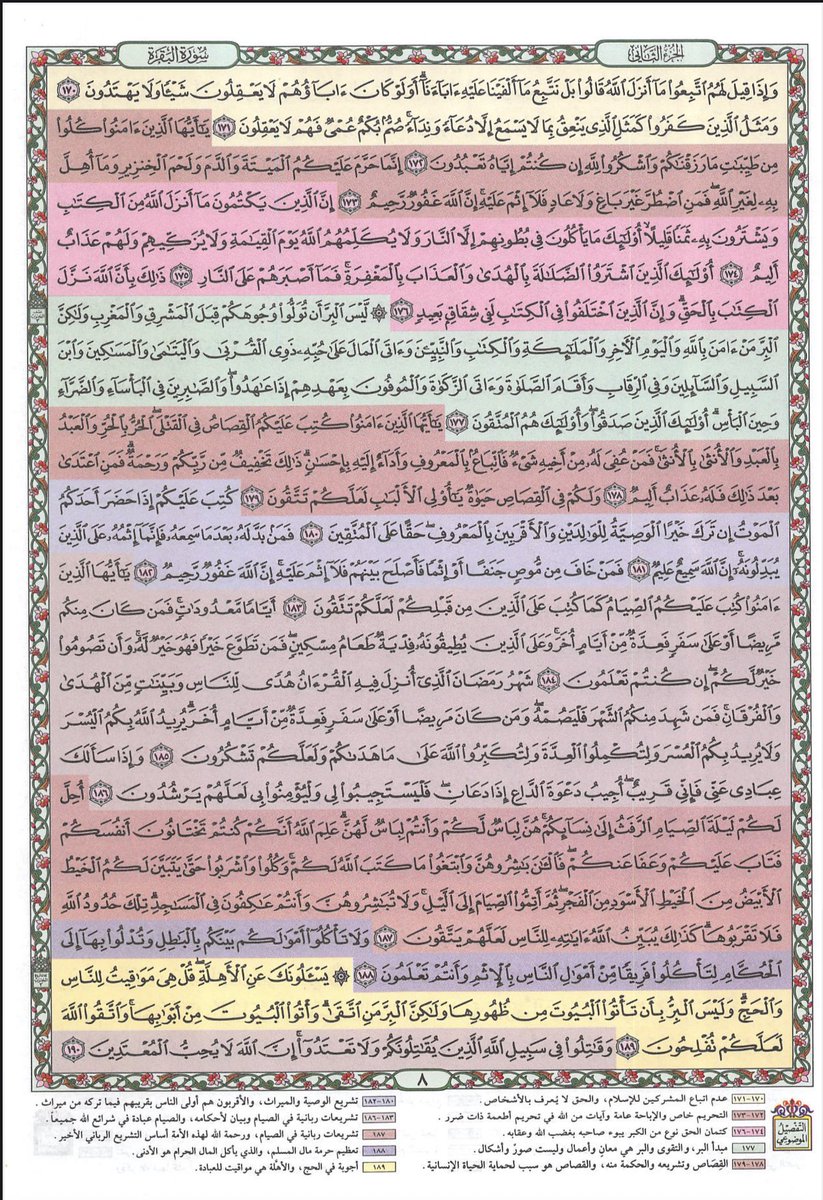 الجزء الثاني
سورة البقرة
وَإِذَا قِيلَ لَهُمُ اتَّبِعُوا مَا أَنزَلَ اللَّهُ قَالُوا بَلْ نَتَّبِعُ مَا أَلْفَيْنَا عَلَيْهِ ءَابَاءَنَا أَوَلَوْ كَانَ ءَابَاؤُهُمْ لَا يَعْقِلُونَ شَيْئًا وَلَا يَهْتَدُونَ ١٧٠
وَمَثَلُ الَّذِينَ كَفَرُوا كَمَثَلِ الَّذِي يَنْعِقُ بِمَا لَا يَسْمَعُ إِلَّا دُعَاءً وَنِدَاءً صُمٌّ بُكْمٌ عُمْيٌ فَهُمْ لَا يَعْقِلُونَ ١٧١ يَا أَيُّهَا الَّذِينَ ءَامَنُوا كُلُوا
مِن طَيِّبَاتِ مَا رَزَقْنَاكُمْ وَاشْكُرُوا لِلَّهِ إِن كُنتُمْ إِيَّاهُ تَعْبُدُونَ ١٧٢ إِنَّمَا حَرَّمَ عَلَيْكُمُ الْمَيْتَةَ وَالدَّمَ وَلَحْمَ الْخِنزِيرِ وَمَا أُهِلَّ
بِهِ لِغَيْرِ اللَّهِ فَمَنِ اضْطُرَّ غَيْرَ بَاغٍ وَلَا عَادٍ فَلَا إِثْمَ عَلَيْهِ إِنَّ اللَّهَ غَفُورٌ رَّحِيمٌ ١٧٣ إِنَّ الَّذِينَ يَكْتُمُونَ مَا أَنزَلَ اللَّهُ مِنَ الْكِتَابِ
وَيَشْتَرُونَ بِهِ ثَمَنًا قَلِيلًا أُولَٰئِكَ مَا يَأْكُلُونَ فِي بُطُونِهِمْ إِلَّا النَّارَ وَلَا يُكَلِّمُهُمُ اللَّهُ يَوْمَ الْقِيَامَةِ وَلَا يُزَكِّيهِمْ وَلَهُمْ عَذَابٌ
أَلِيمٌ ١٧٤ أُولَٰئِكَ الَّذِينَ اشْتَرَوُا الضَّلَالَةَ بِالْهُدَىٰ وَالْعَذَابَ بِالْمَغْفِرَةِ فَمَا أَصْبَرَهُمْ عَلَى النَّارِ ١٧٥ ذَٰلِكَ بِأَنَّ اللَّهَ نَزَّلَ
الْكِتَابَ بِالْحَقِّ وَإِنَّ الَّذِينَ اخْتَلَفُوا فِي الْكِتَابِ لَفِي شِقَاقٍ بَعِيدٍ ١٧٦ ۞ لَّيْسَ الْبِرَّ أَن تُوَلُّوا وُجُوهَكُمْ قِبَلَ الْمَشْرِقِ وَالْمَغْرِبِ وَلَٰكِنَّ
الْبِرَّ مَنْ ءَامَنَ بِاللَّهِ وَالْيَوْمِ الْآخِرِ وَالْمَلَائِكَةِ وَالْكِتَابِ وَالنَّبِيِّينَ وَءَاتَى الْمَالَ عَلَىٰ حُبِّهِ ذَوِي الْقُرْبَىٰ وَالْيَتَامَىٰ وَالْمَسَاكِينَ وَابْنَ
السَّبِيلِ وَالسَّائِلِينَ وَفِي الرِّقَابِ وَأَقَامَ الصَّلَوٰةَ وَءَاتَى الزَّكَوٰةَ وَالْمُوفُونَ بِعَهْدِهِمْ إِذَا عَاهَدُوا وَالصَّابِرِينَ فِي الْبَأْسَاءِ وَالضَّرَّاءِ
وَحِينَ الْبَأْسِ أُولَٰئِكَ الَّذِينَ صَدَقُوا وَأُولَٰئِكَ هُمُ الْمُتَّقُونَ ١٧٧ يَا أَيُّهَا الَّذِينَ ءَامَنُوا كُتِبَ عَلَيْكُمُ الْقِصَاصُ فِي الْقَتْلَى الْحُرُّ بِالْحُرِّ وَالْعَبْدُ
بِالْعَبْدِ وَالْأُنثَىٰ بِالْأُنثَىٰ فَمَنْ عُفِيَ لَهُ مِنْ أَخِيهِ شَيْءٌ فَاتِّبَاعٌ بِالْمَعْرُوفِ وَأَدَاءٌ إِلَيْهِ بِإِحْسَانٍ ذَٰلِكَ تَخْفِيفٌ مِّن رَّبِّكُمْ وَرَحْمَةٌ فَمَنِ اعْتَدَىٰ
بَعْدَ ذَٰلِكَ فَلَهُ عَذَابٌ أَلِيمٌ ١٧٨ وَلَكُمْ فِي الْقِصَاصِ حَيَوٰةٌ يَا أُولِي الْأَلْبَابِ لَعَلَّكُمْ تَتَّقُونَ ١٧٩ كُتِبَ عَلَيْكُمْ إِذَا حَضَرَ أَحَدَكُمُ
الْمَوْتُ إِن تَرَكَ خَيْرًا الْوَصِيَّةُ لِلْوَالِدَيْنِ وَالْأَقْرَبِينَ بِالْمَعْرُوفِ حَقًّا عَلَى الْمُتَّقِينَ ١٨٠ فَمَن بَدَّلَهُ بَعْدَ مَا سَمِعَهُ فَإِنَّمَا إِثْمُهُ عَلَى الَّذِينَ
يُبَدِّلُونَهُ إِنَّ اللَّهَ سَمِيعٌ عَلِيمٌ ١٨١ فَمَنْ خَافَ مِن مُّوصٍ جَنَفًا أَوْ إِثْمًا فَأَصْلَحَ بَيْنَهُمْ فَلَا إِثْمَ عَلَيْهِ إِنَّ اللَّهَ غَفُورٌ رَّحِيمٌ ١٨٢ يَا أَيُّهَا الَّذِينَ
ءَامَنُوا كُتِبَ عَلَيْكُمُ الصِّيَامُ كَمَا كُتِبَ عَلَى الَّذِينَ مِن قَبْلِكُمْ لَعَلَّكُمْ تَتَّقُونَ ١٨٣ أَيَّامًا مَّعْدُودَاتٍ فَمَن كَانَ مِنكُم
مَّرِيضًا أَوْ عَلَىٰ سَفَرٍ فَعِدَّةٌ مِّنْ أَيَّامٍ أُخَرَ وَعَلَى الَّذِينَ يُطِيقُونَهُ فِدْيَةٌ طَعَامُ مِسْكِينٍ فَمَن تَطَوَّعَ خَيْرًا فَهُوَ خَيْرٌ لَّهُ وَأَن تَصُومُوا
خَيْرٌ لَّكُمْ إِن كُنتُمْ تَعْلَمُونَ ١٨٤ شَهْرُ رَمَضَانَ الَّذِي أُنزِلَ فِيهِ الْقُرْءَانُ هُدًى لِّلنَّاسِ وَبَيِّنَاتٍ مِّنَ الْهُدَىٰ
وَالْفُرْقَانِ فَمَن شَهِدَ مِنكُمُ الشَّهْرَ فَلْيَصُمْهُ وَمَن كَانَ مَرِيضًا أَوْ عَلَىٰ سَفَرٍ فَعِدَّةٌ مِّنْ أَيَّامٍ أُخَرَ يُرِيدُ اللَّهُ بِكُمُ الْيُسْرَ
وَلَا يُرِيدُ بِكُمُ الْعُسْرَ وَلِتُكْمِلُوا الْعِدَّةَ وَلِتُكَبِّرُوا اللَّهَ عَلَىٰ مَا هَدَاكُمْ وَلَعَلَّكُمْ تَشْكُرُونَ ١٨٥ وَإِذَا سَأَلَكَ
عِبَادِي عَنِّي فَإِنِّي قَرِيبٌ أُجِيبُ دَعْوَةَ الدَّاعِ إِذَا دَعَانِ فَلْيَسْتَجِيبُوا لِي وَلْيُؤْمِنُوا بِي لَعَلَّهُمْ يَرْشُدُونَ ١٨٦ أُحِلَّ
لَكُمْ لَيْلَةَ الصِّيَامِ الرَّفَثُ إِلَىٰ نِسَائِكُمْ هُنَّ لِبَاسٌ لَّكُمْ وَأَنتُمْ لِبَاسٌ لَّهُنَّ عَلِمَ اللَّهُ أَنَّكُمْ كُنتُمْ تَخْتَانُونَ أَنفُسَكُمْ
فَتَابَ عَلَيْكُمْ وَعَفَا عَنكُمْ فَالْآنَ بَاشِرُوهُنَّ وَابْتَغُوا مَا كَتَبَ اللَّهُ لَكُمْ وَكُلُوا وَاشْرَبُوا حَتَّىٰ يَتَبَيَّنَ لَكُمُ الْخَيْطُ
الْأَبْيَضُ مِنَ الْخَيْطِ الْأَسْوَدِ مِنَ الْفَجْرِ ثُمَّ أَتِمُّوا الصِّيَامَ إِلَى اللَّيْلِ وَلَا تُبَاشِرُوهُنَّ وَأَنتُمْ عَاكِفُونَ فِي الْمَسَاجِدِ تِلْكَ حُدُودُ اللَّهِ
فَلَا تَقْرَبُوهَا كَذَٰلِكَ يُبَيِّنُ اللَّهُ ءَايَاتِهِ لِلنَّاسِ لَعَلَّهُمْ يَتَّقُونَ ١٨٧ وَلَا تَأْكُلُوا أَمْوَالَكُم بَيْنَكُم بِالْبَاطِلِ وَتُدْلُوا بِهَا إِلَى
الْحُكَّامِ لِتَأْكُلُوا فَرِيقًا مِّنْ أَمْوَالِ النَّاسِ بِالْإِثْمِ وَأَنتُمْ تَعْلَمُونَ ١٨٨ ۞ يَسْأَلُونَكَ عَنِ الْأَهِلَّةِ قُلْ هِيَ مَوَاقِيتُ لِلنَّاسِ
وَالْحَجِّ وَلَيْسَ الْبِرُّ بِأَن تَأْتُوا الْبُيُوتَ مِن ظُهُورِهَا وَلَٰكِنَّ الْبِرَّ مَنِ اتَّقَىٰ وَأْتُوا الْبُيُوتَ مِنْ أَبْوَابِهَا وَاتَّقُوا اللَّهَ
لَعَلَّكُمْ تُفْلِحُونَ ١٨٩ وَقَاتِلُوا فِي سَبِيلِ اللَّهِ الَّذِينَ يُقَاتِلُونَكُمْ وَلَا تَعْتَدُوا إِنَّ اللَّهَ لَا يُحِبُّ الْمُعْتَدِينَ ١٩٠
٨
التفصيل الموضوعي
١٧٠-١٧١ عدم اتباع المشركين للإسلام، والحق لا يُعرف بالأشخاص.
١٧٢-١٧٣ التحريم خاص والإباحة عامة وآيات من الله في تحريم أطعمة ذات ضرر.
١٧٤-١٧٦ كتمان الحق نوع من الكبر يبوء صاحبه بغضب الله وعقابه.
١٧٧ مبدأ البر، والتقوى والبر هي معانٍ وأعمال وليست صورٌ وأشكال.
١٧٨-١٧٩ القِصَاص وتشريعه والحكمة منه، والقصاص هو سبب لحماية الحياة الإنسانية.
١٨٠-١٨٢ تشريع الوصية والميراث، والأقربون هم أولى الناس بقريبهم فيما تركه من ميراث.
١٨٣-١٨٦ تشريعات ربانية في الصيام وبيان لأحكامه، والصيام عبادة في شرائع الله جميعاً.
١٨٧ تشريعات ربانية في الصيام، ورحمة الله لهذه الأمة أساس التشريع الرباني الأخير.
١٨٨ تعظيم حرمة مال المسلم، والذي يأكل المال الحرام هو الأدنى.
١٨٩ أجوبة في الحج، والأهلّة هي مواقيت للعبادة.